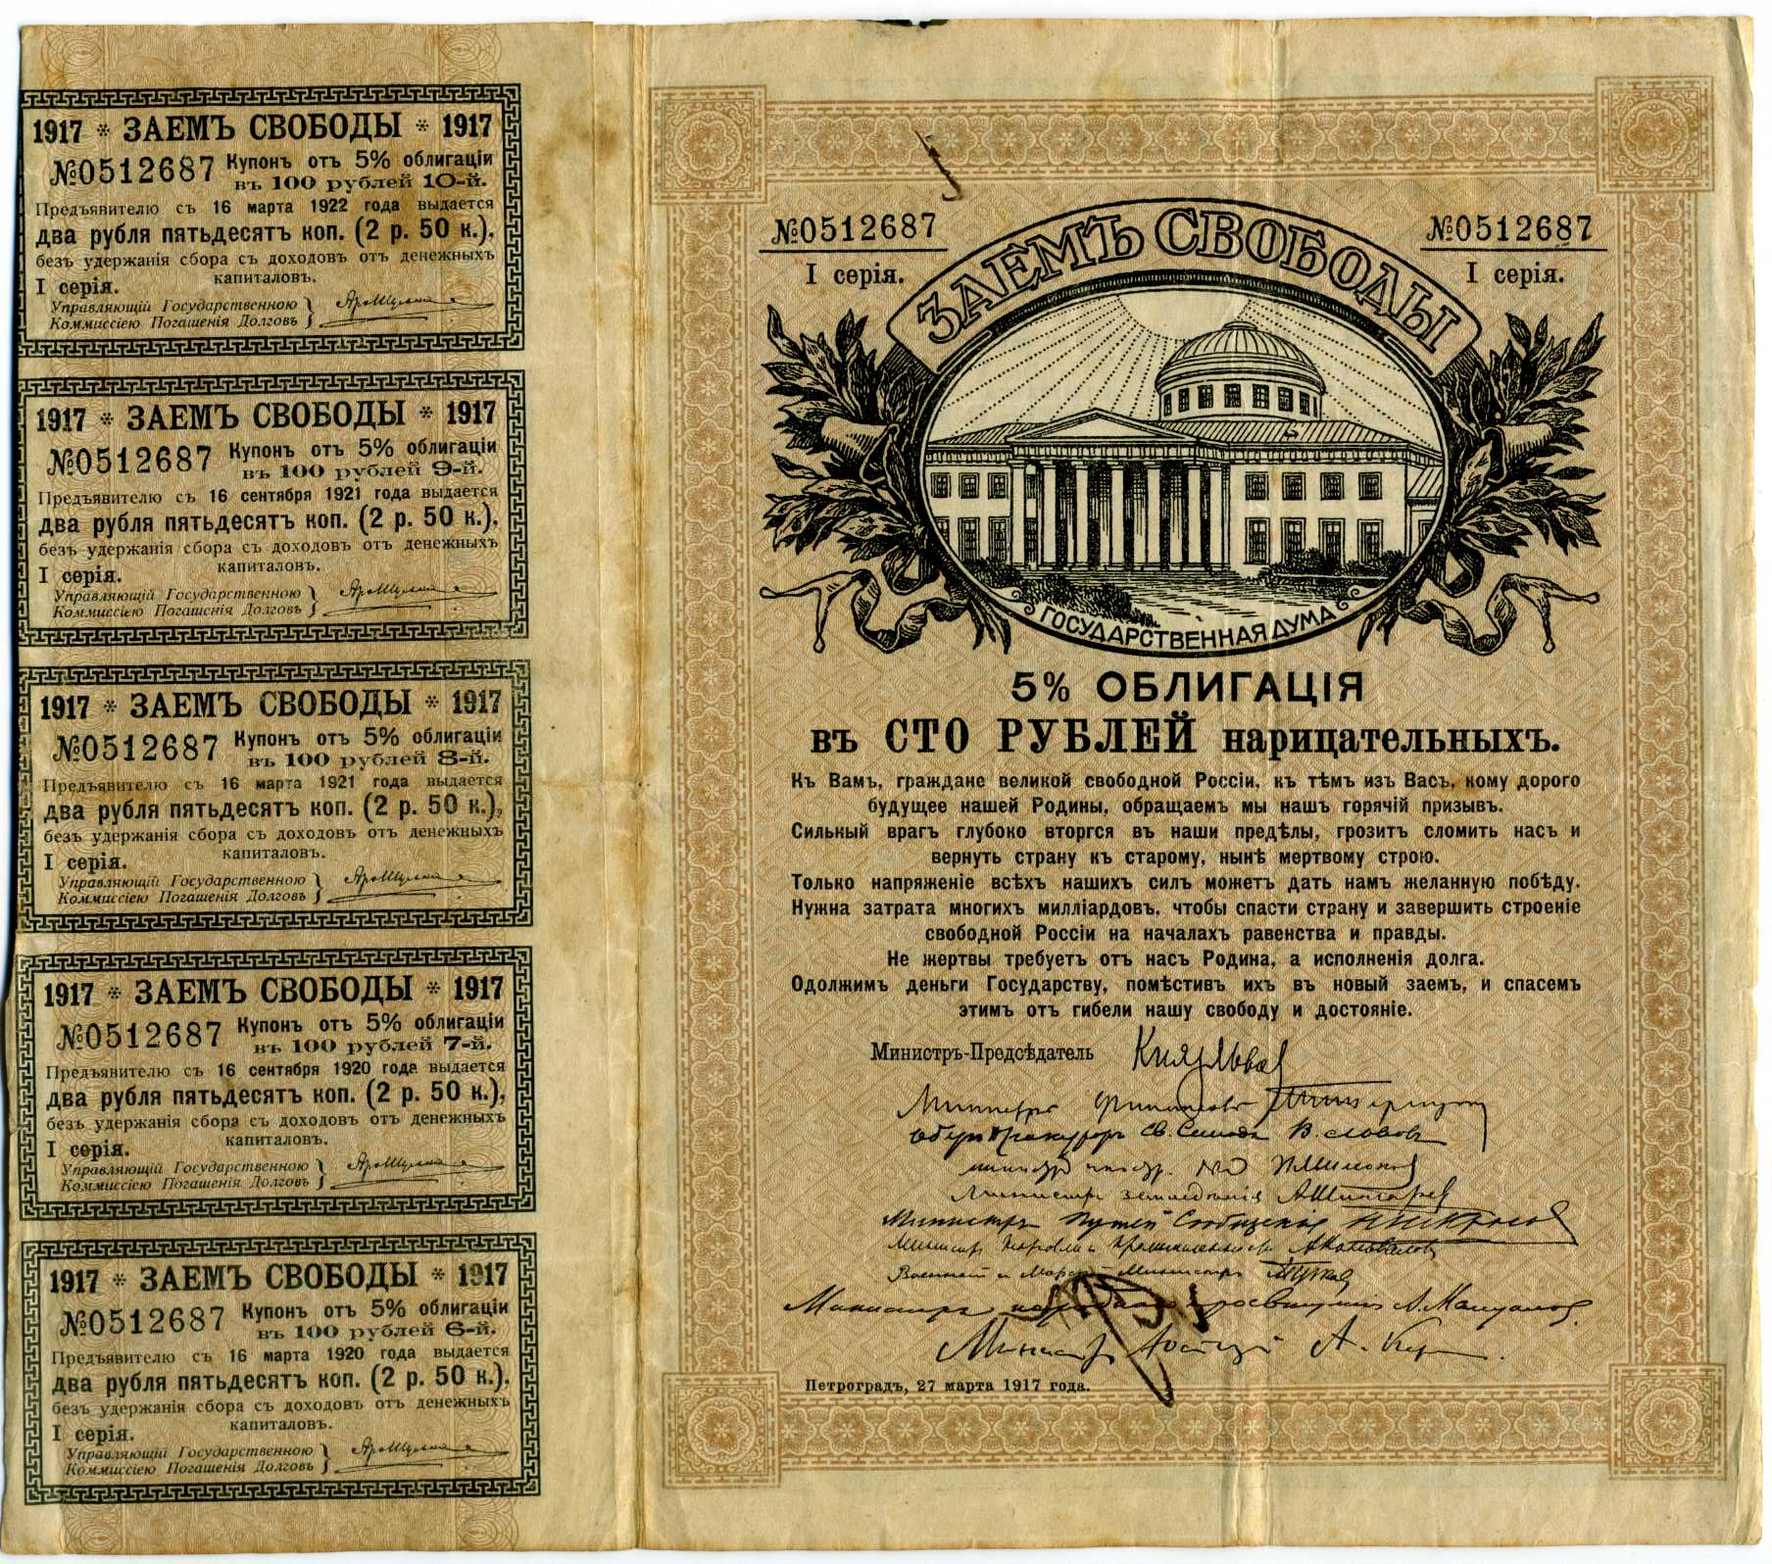 1917 * ЗАЕМЪ СВОБОДЫ * 1917
№0512687 Купонъ отъ 5% облигаціи
въ 100 рублей 10-й.
Предъявителю съ 16 марта 1922 года выдается
два рубля пятьдесятъ коп. (2 р. 50 к.),
безъ удержанія сбора съ доходовъ отъ денежныхъ
капиталовъ.
I серія.
Управляющій Государственною
Коммиссіею Погашенія Долговъ
1917 * ЗАЕМЪ СВОБОДЫ * 1917
№0512687 Купонъ отъ 5% облигаціи
въ 100 рублей 9-й.
Предъявителю съ 16 сентября 1921 года выдается
два рубля пятьдесятъ коп. (2 р. 50 к.),
безъ удержанія сбора съ доходовъ отъ денежныхъ
капиталовъ.
I серія.
Управляющій Государственною
Коммиссіею Погашенія Долговъ
1917 * ЗАЕМЪ СВОБОДЫ * 1917
№0512687 Купонъ отъ 5% облигаціи
въ 100 рублей 8-й.
Предъявителю съ 16 марта 1921 года выдается
два рубля пятьдесятъ коп. (2 р. 50 к.),
безъ удержанія сбора съ доходовъ отъ денежныхъ
капиталовъ.
I серія.
Управляющій Государственною
Коммиссіею Погашенія Долговъ
1917 * ЗАЕМЪ СВОБОДЫ * 1917
№0512687 Купонъ отъ 5% облигаціи
въ 100 рублей 7-й.
Предъявителю съ 16 сентября 1920 года выдается
два рубля пятьдесятъ коп. (2 р. 50 к.),
безъ удержанія сбора съ доходовъ отъ денежныхъ
капиталовъ.
I серія.
Управляющій Государственною
Коммиссіею Погашенія Долговъ
1917 * ЗАЕМЪ СВОБОДЫ * 1917
№0512687 Купонъ отъ 5% облигаціи
въ 100 рублей 6-й.
Предъявителю съ 16 марта 1920 года выдается
два рубля пятьдесятъ коп. (2 р. 50 к.),
безъ удержанія сбора съ доходовъ отъ денежныхъ
капиталовъ.
I серія.
Управляющій Государственною
Коммиссіею Погашенія Долговъ
№0512687
I серія.
ЗАЕМЪ СВОБОДЫ
№0512687
I серія.
ГОСУДАРСТВЕННАЯ ДУМА
5% ОБЛИГАЦІЯ
въ СТО РУБЛЕЙ нарицательныхъ.
Къ Вамъ, граждане великой свободной Россіи, къ тѣмъ изъ Васъ, кому дорого
будущее нашей Родины, обращаемъ мы нашъ горячій призывъ.
Сильный врагъ глубоко вторгся въ наши предѣлы, грозитъ сломить насъ и
вернуть страну къ старому, нынѣ мертвому строю.
Только напряженіе всѣхъ нашихъ силъ можетъ дать намъ желанную побѣду.
Нужна затрата многихъ милліардовъ, чтобы спасти страну и завершить строеніе
свободной Россіи на началахъ равенства и правды.
Не жертвы требуетъ отъ насъ Родина, а исполненія долга.
Одолжимъ деньги Государству, помѣстивъ ихъ въ новый заемъ, и спасемъ
этимъ отъ гибели нашу свободу и достояніе.
Министръ-Предсѣдатель Князь Львов
Министръ Финансовъ
Оберъ Прокуроръ Св. Синода В. Львовъ
Министръ Земледѣлія А. Шингарев
Министръ Путей Сообщенія Н. Некрасов
Министръ Торговли и Промышленности А. Коновалов
Военный и Морской Министръ
Министръ народнаго просвѣщенія А. Мануйлов
Министръ Юстиціи А. Кер
Петроградъ, 27 марта 1917 года.